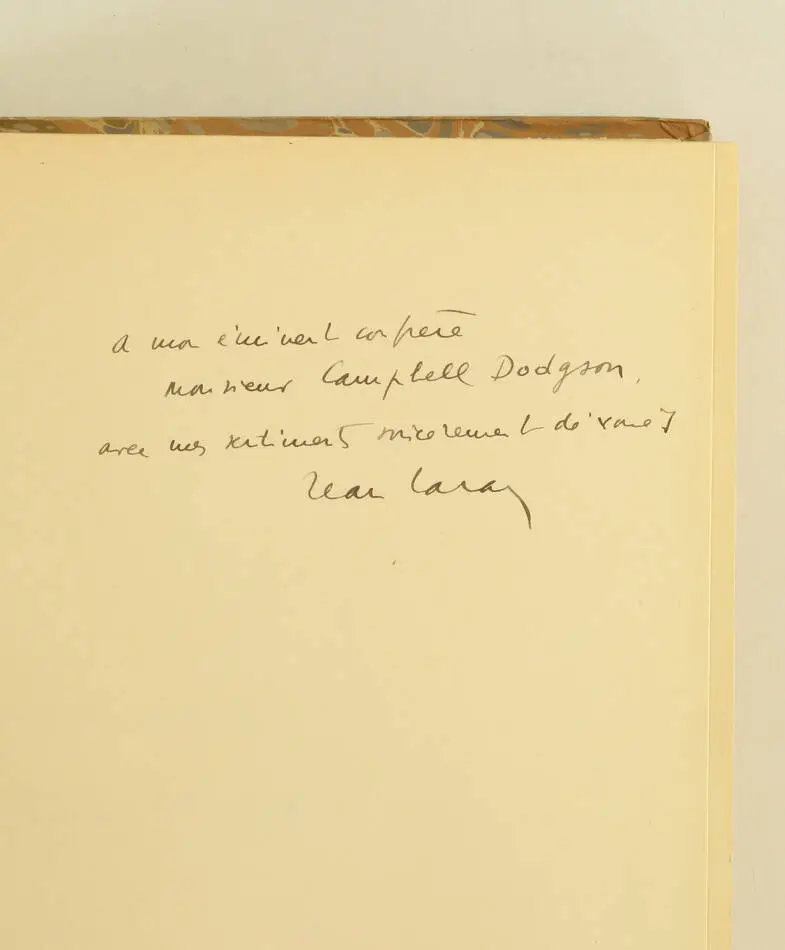 A mon éminent confrère
Monsieur Campbell Dodgson,
avec mes sentiments sincèrement dévoués
Jean Laran